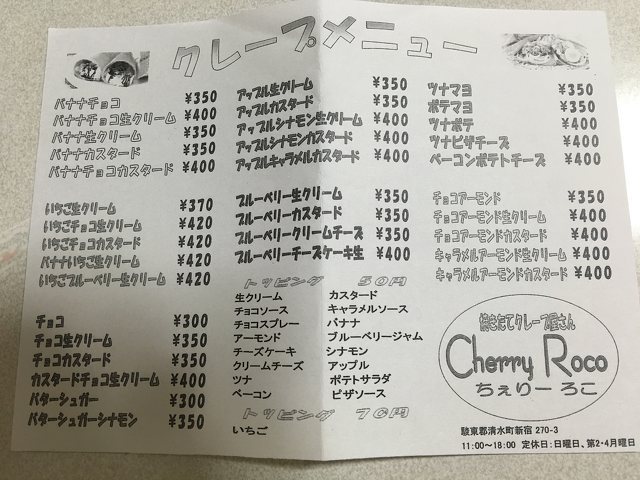 クレープメニュー
バナナチョコ ¥350
バナナチョコ生クリーム ¥400
バナナ生クリーム ¥350
バナナカスタード ¥350
バナナチョコカスタード ¥400
いちご生クリーム ¥370
いちごチョコ生クリーム ¥420
いちごチョコカスタード ¥420
バナナいちご生クリーム ¥420
いちごブルーベリー生クリーム ¥420
チョコ ¥300
チョコ生クリーム ¥350
チョコカスタード ¥350
カスタードチョコ生クリーム ¥400
バターシュガー ¥300
バターシュガーシナモン ¥350
アップル生クリーム ¥350
アップルカスタード ¥350
アップルシナモン生クリーム ¥400
アップルシナモンカスタード ¥400
アップルキャラメルカスタード ¥400
ブルーベリー生クリーム ¥350
ブルーベリーカスタード ¥350
ブルーベリークリームチーズ ¥350
ブルーベリーチーズケーキ生 ¥400
トッピング 50円
生クリーム カスタード
チョコソース キャラメルソース
チョコスプレー バナナ
アーモンド ブルーベリージャム
チーズケーキ シナモン
クリームチーズ アップル
ツナ ポテトサラダ
ベーコン ピザソース
トッピング 70円
いちご
ツナマヨ ¥350
ポテマヨ ¥350
ツナポテ ¥400
ツナピザチーズ ¥400
ベーコンポテトチーズ ¥400
チョコアーモンド ¥350
チョコアーモンド生クリーム ¥400
チョコアーモンドカスタード ¥400
キャラメルアーモンド生クリーム ¥400
キャラメルアーモンドカスタード ¥400
焼きたてクレープ屋さん
Cherry Roco
ちぇりー ろこ
駿東郡清水町新宿 270-3
11:00～18:00 定休日:日曜日、第2・4月曜日